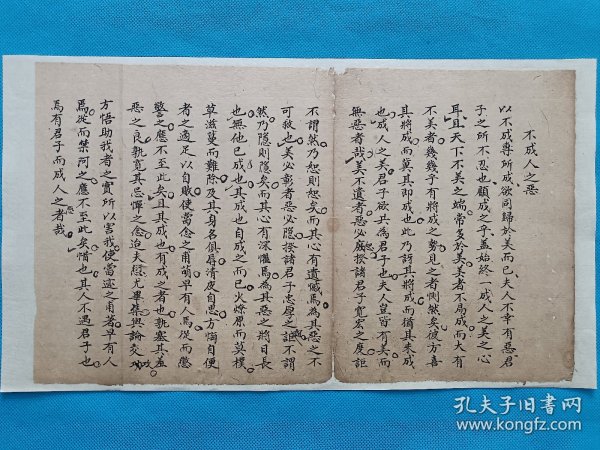 不成人之惡
以不成專所成欲同歸於美而已夫人不幸有惡君
子之所不忍也顧成之乎蓋始終一成人之美之心
耳且天下不美之端常多於美美者不局成而大有
不美者幾幾乎有將成之勢見之者惻然矣彼方喜
其將成而莫其即成也此乃訝其將成而猶其未成
也成人之美君子欲共為君子也夫人豈皆有美而
無惡者哉美不遺者惡必厭揆諸君子寬宏之度詎
不謂然乃恕則恕矣而其心有遺憾焉為其惡之不
可救也美必彰者惡必隱揆諸君子忠厚之謳不謂
然乃隱則隱矣而其心有深懼焉為其惡之將日長
也無他已成也其成也自成之而已火燎原而莫撲
草滋蔓而難除及其身名俱辱清夜自思方悔自便
者之適足以自賊使當念之甫萌早有人焉從而懲
警之應不至此矣且其成也有成之者也孰塞其羞
惡之良孰寬其忌憚之念迨夫愆尤畢集輿論交攻
方悟助我者之實所以害我使當迹之甫著早有人
焉從而禁阿之應不至此矣惜也其人不遇君子也
焉有君子而成人之惡者哉
孔夫子旧书网
www.kongfz.com